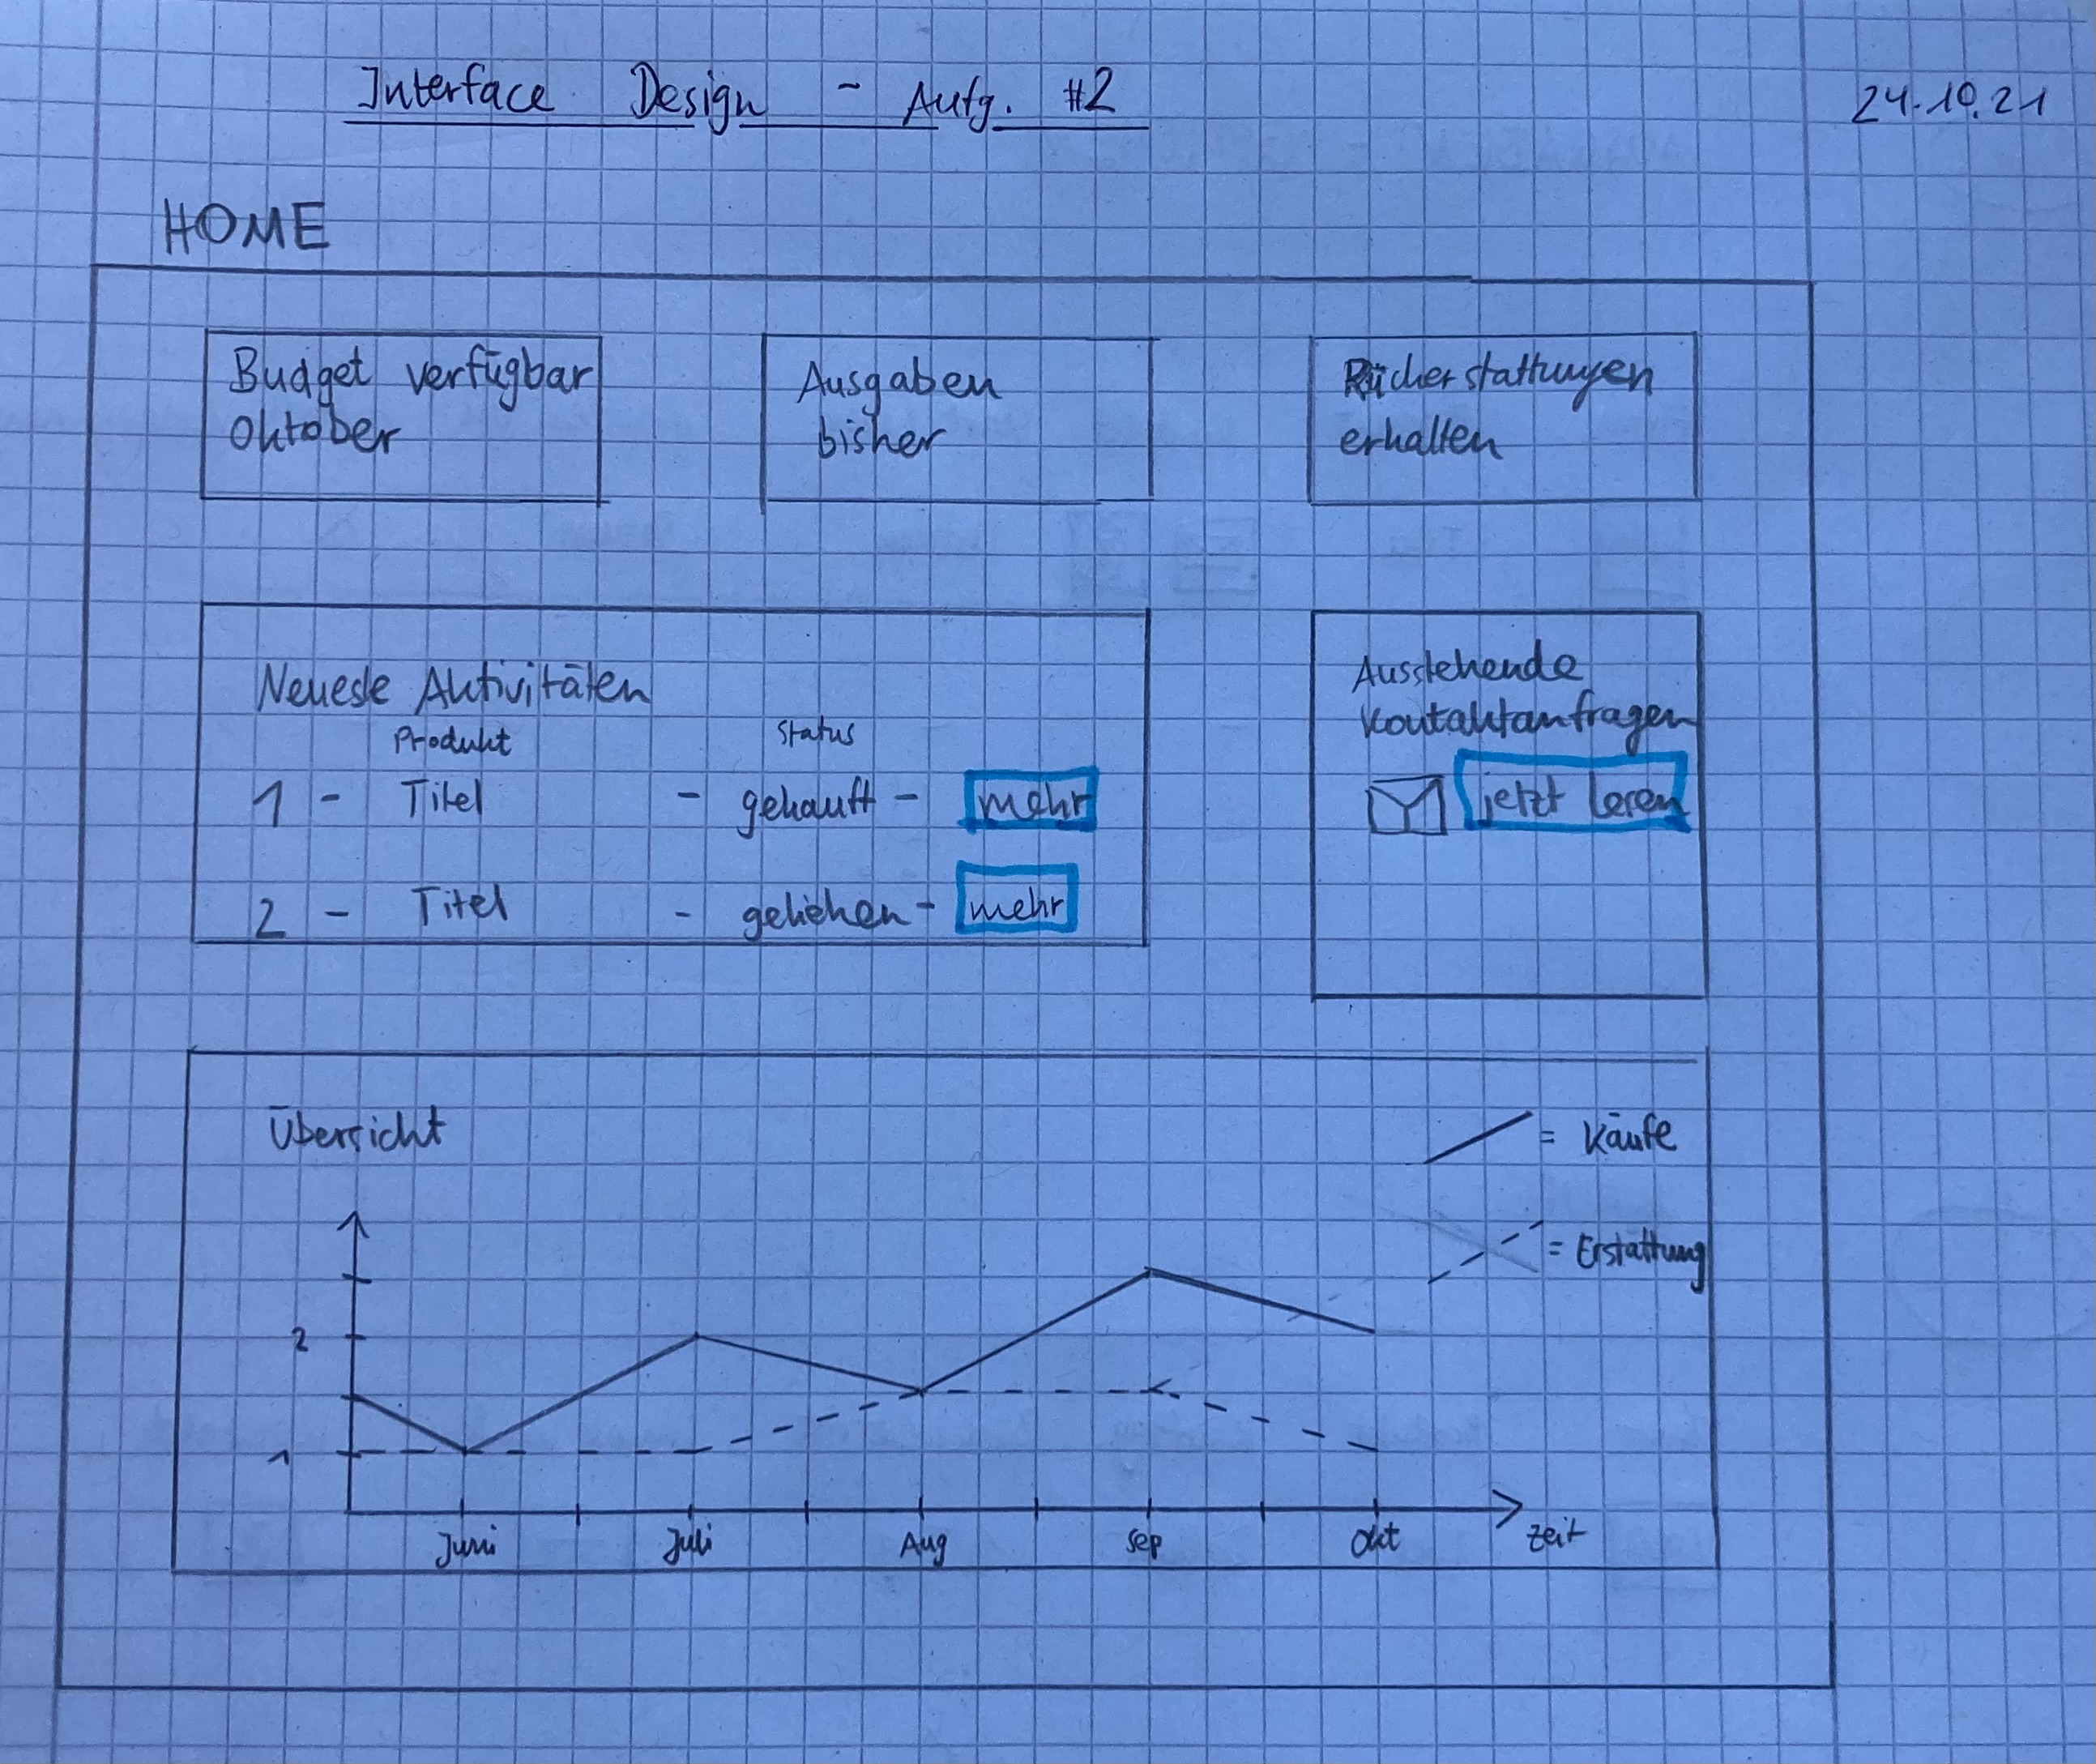 Interface Design - Aufg. #2
24.10.21
HOME
Budget verfügbar
Oktober
Ausgaben
bisher
Rückerstattungen
erhalten
Neueste Aktivitäten
Produkt Status
1 - Titel - gekauft - mehr
2 - Titel - geliehen - mehr
Ausstehende
Kontaktanfragen
jetzt lesen
Übersicht
= Käufe
= Erstattung
2
1
Juni Juli Aug Sep Okt Zeit